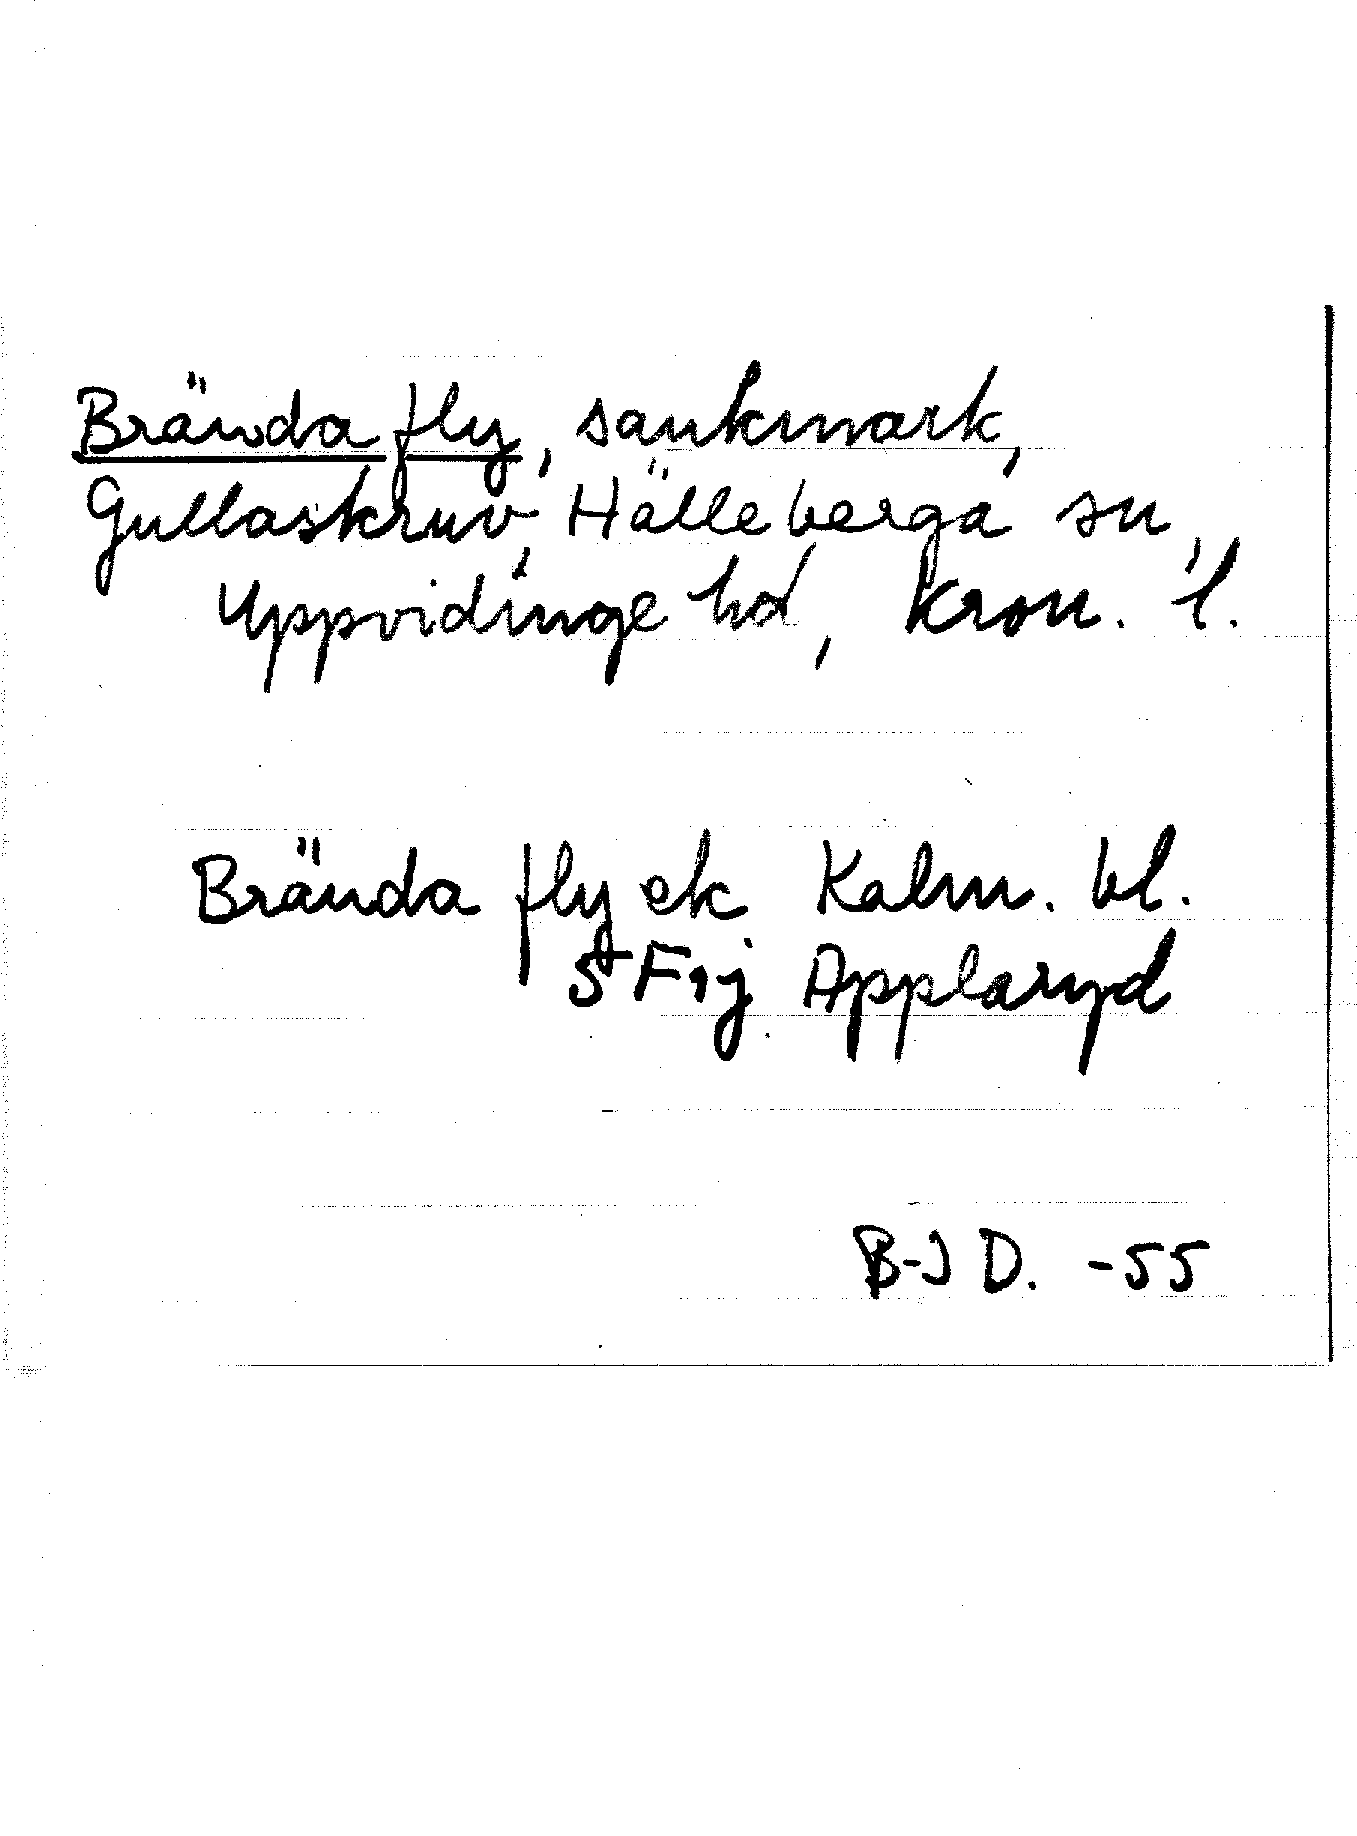 Brända fly, sankmark,
Gullaskruv, Hälleberga sn,
Uppvidinge hd, Kron. l.
Brända fly ek Kalm. bl.
5 F 1j Applaryd
B-J D. -55